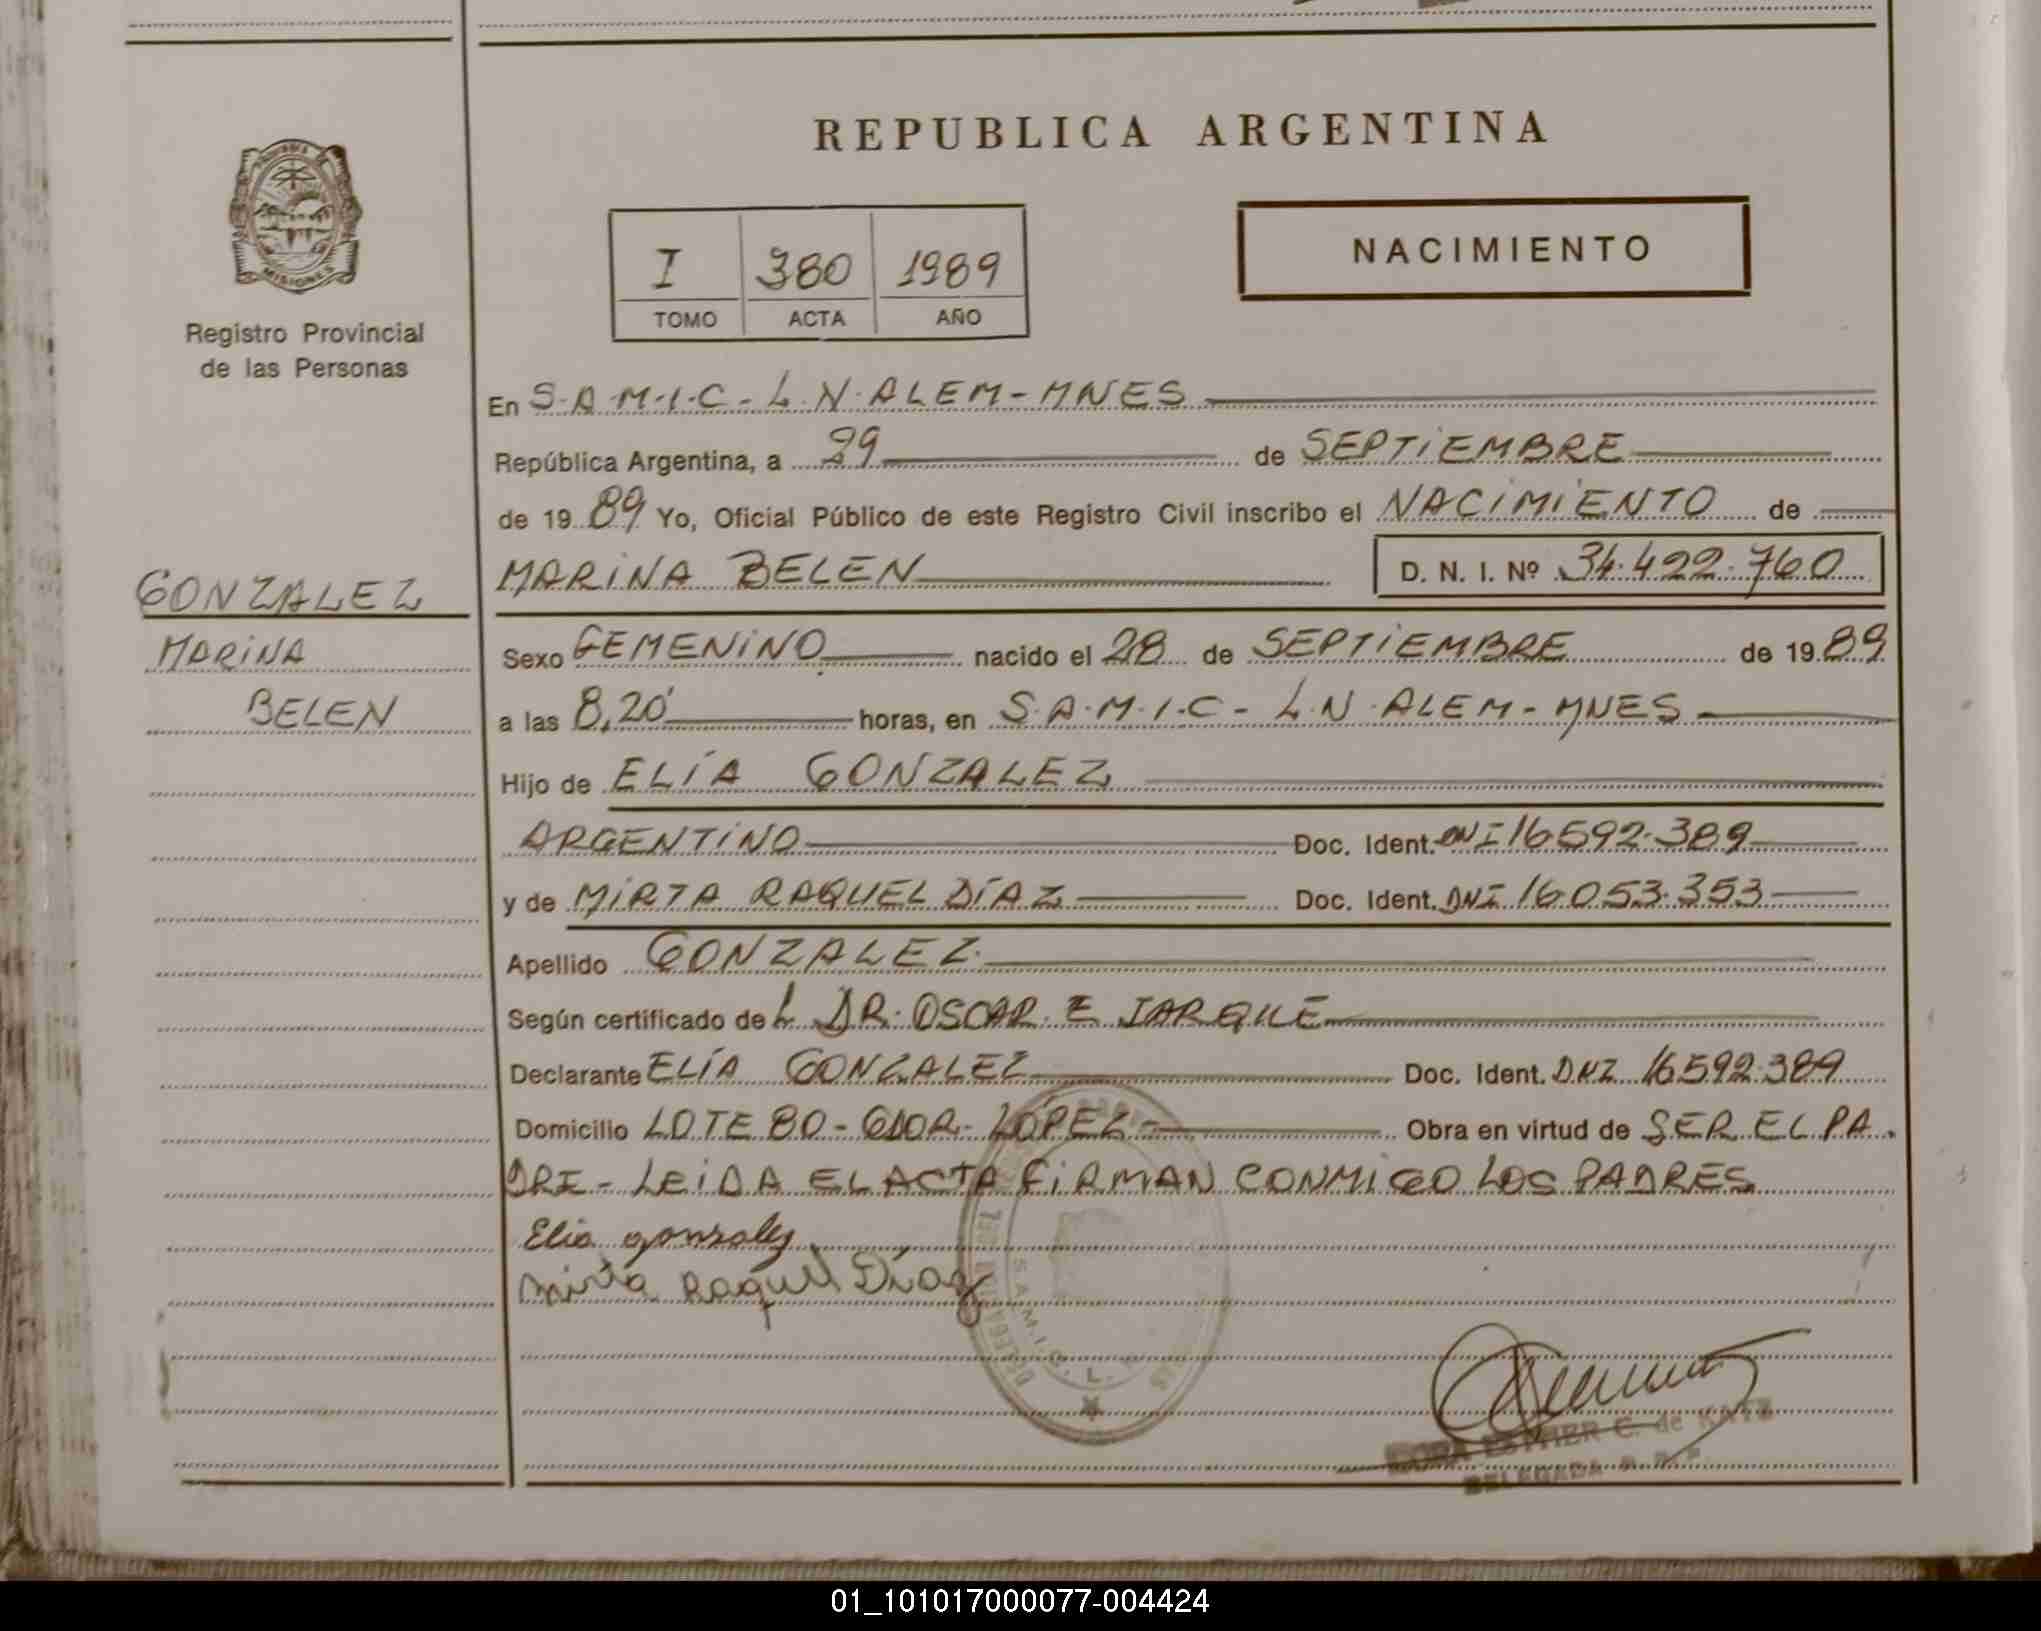 REPUBLICA ARGENTINA
MISIONES
Registro Provincial
de las Personas
I 380 1989
TOMO ACTA AÑO
NACIMIENTO
En S.A.M.I.C - L.N. ALEM - MNES
República Argentina, a 29 de SEPTIEMBRE
de 1989 Yo, Oficial Público de este Registro Civil inscribo el NACIMIENTO de
MARINA BELEN D. N. I. Nº 34.422.760
GONZALEZ
MARINA
BELEN
Sexo FEMENINO nacido el 28 de SEPTIEMBRE de 1989
a las 8,20' horas, en S.A.M.I.C - L.N. ALEM - MNES
Hijo de ELÍA GONZALEZ
ARGENTINO Doc. Ident. DNI 16592.389
y de MIRTA RAQUEL DÍAZ Doc. Ident. DNI 16.053.353
Apellido GONZALEZ
Según certificado de L DR. OSCAR E JARQUE
Declarante ELÍA GONZALEZ Doc. Ident. DNI 16592.389
Domicilio LOTE 80 - GDOR. LÓPEZ - Obra en virtud de SER EL PA
DRE - LEIDA EL ACTA FIRMAN CONMIGO LOS PADRES
Elia gonzalez
Mirta Raquel Díaz
S.A.M.I.C. L.
ESTHER C. de KATZ
DELEGADA
01_101017000077-004424